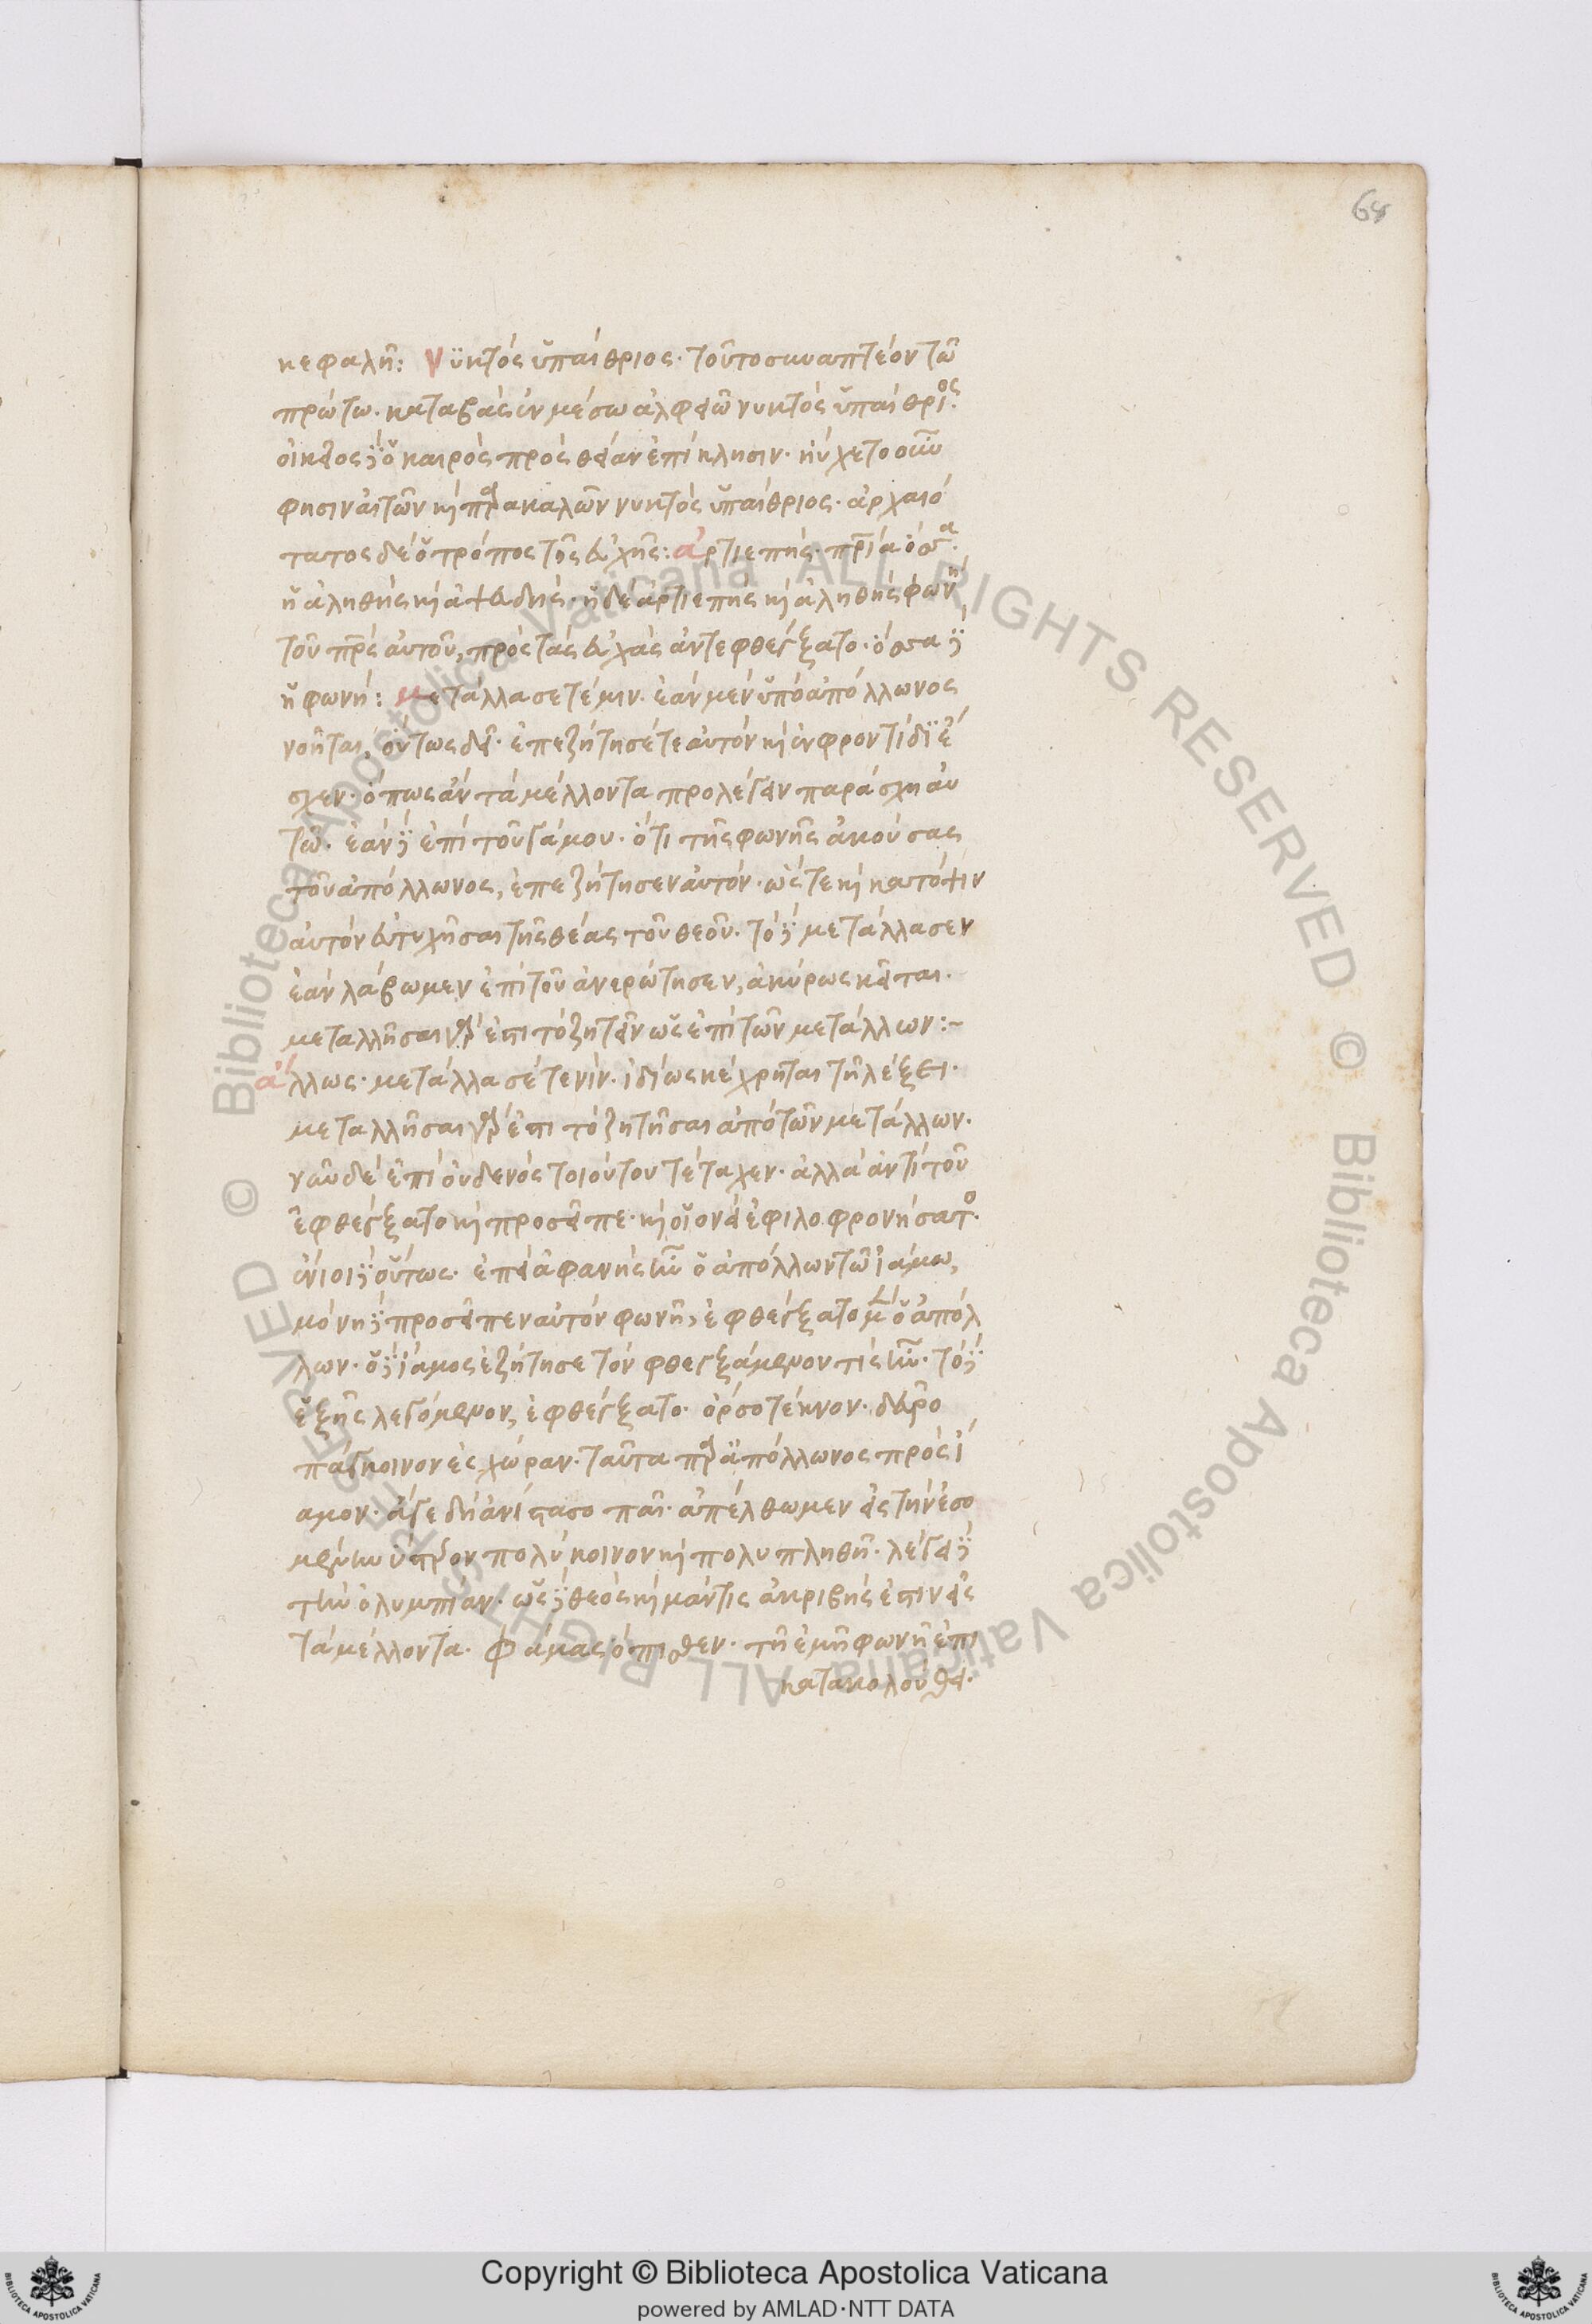 68
κεφαλῆ: Νϋκτὸς ὑπαίθριος· τοῦτο συναπτέον τῶ
πρώτω· καταβὰς ἐν μέσω ἀλφειῶ νυκτὸς ὑπαίθριος·
οἰκεῖος δὲ ὁ καιρὸς πρὸς θείαν ἐπίκλησιν· ηὔχετο οὖν
φησιν αἰτῶν κὶ παρακαλῶν νυκτὸς ὑπαίθριος· ἀρχαιό
τατος δὲ ὁ τρόπος τῆς εὐχῆς: ἀρτιεπὴς πρία ὄσσα·
ἡ ἀληθὴς κὶ ἀψευδής· ἡ δὲ ἀρτιεπὴς κὶ ἀληθὴς φωνὴ
τοῦ πρς αὐτοῦ, πρὸς τὰς εὐχὰς ἀντεφθέγξατο· ὄσσα δὲ
ἡ φωνή: μετάλλασέ τέ μιν· ἐὰν μὲν ὑπὸ ἀπόλλωνος
νοῆται, οὕτως δεῖ· ἐπεζήτησέ τε αὐτὸν κὶ ἐν φροντίδϊ ἔ
σχεν· ὅπως ἂν τὰ μέλλοντα προλέγειν παράσχη αὐ
τῶ· ἐὰν δὲ ἐπὶ τοῦ ἰάμου· ὅτι τῆς φωνῆς ἀκούσας
τοῦ ἀπόλλωνος, ἐπεζήτησεν αὐτόν· ὥςτε κὶ κατόψιν
αὐτὸν εὐτυχῆσαι τῆς θέας τοῦ θεοῦ· τὸ δὲ μετάλλασεν
ἐὰν λάβωμεν ἐπὶ τοῦ ἀνερώτησεν, ἀκύρως κεῖται·
μεταλλῆσαι γάρ ἐστι τὸ ζητεῖν ὡς ἐπὶ τῶν μετάλλων:~
ἄλλως· μετάλλασέ τενίν· ἰδίως κέχρηται τῆ λέξει·
μεταλλῆσαι γάρ ἐστι τὸ ζητῆσαι ἀπὸ τῶν μετάλλων·
νῦν δὲ ἐπὶ οὐδενὸς τοιούτου τέταχεν· ἀλλὰ ἀντὶ τοῦ
ἐφθέγξατο κὶ προσεῖπε· κὶ οἱονεὶ ἐφιλοφρονήσατο·
ἔνιοι δὲ οὕτως· ἐπεὶ ἀφανὴς ἦν ὁ ἀπόλλων τῶ ἰάμω,
μόνη δὲ προσεῖπεν αὐτὸν φωνῆ, ἐφθέγξατο μὲν ὁ ἀπόλ
λων· ὁ δὲ ἴαμος ἐζήτησε τὸν φθεγξάμενον τίς ἦν· τὸ δὲ
ἑξῆς λεγόμενον, ἐφθέγξατο· ὄρσο τέκνον· δεῦρο
πάγκοινον ἐς χώραν· ταῦτα παρὰ ἀπόλλωνος πρὸς ἴ
αμον· ἄγε δὴ ἀνίστασο παῖ· ἀπέλθωμεν εἰς τὴν ἐσο
μένην ὕστερον πολύκοινον κὶ πολυπληθῆ· λέγει δὲ
τὴν ὀλυμπίαν· ὡς δὲ θεὸς κὶ μάντις ἀκριβὴς ἐπινεῖς
τὰ μέλλοντα· φάμας ὄπισθεν· τῆ ἐμῆ φωνῆ ἐπι
κατακολούθει·
Copyright © Biblioteca Apostolica Vaticana
powered by AMLAD·NTT DATA
© Biblioteca Apostolica Vaticana ALL RIGHTS RESERVED © Biblioteca Apostolica Vaticana ALL RIGHTS RESERVED